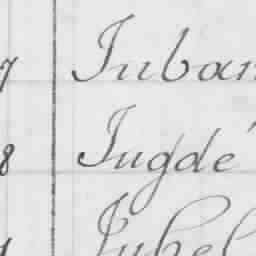 7 Juban
8 Jugdé
Jubel